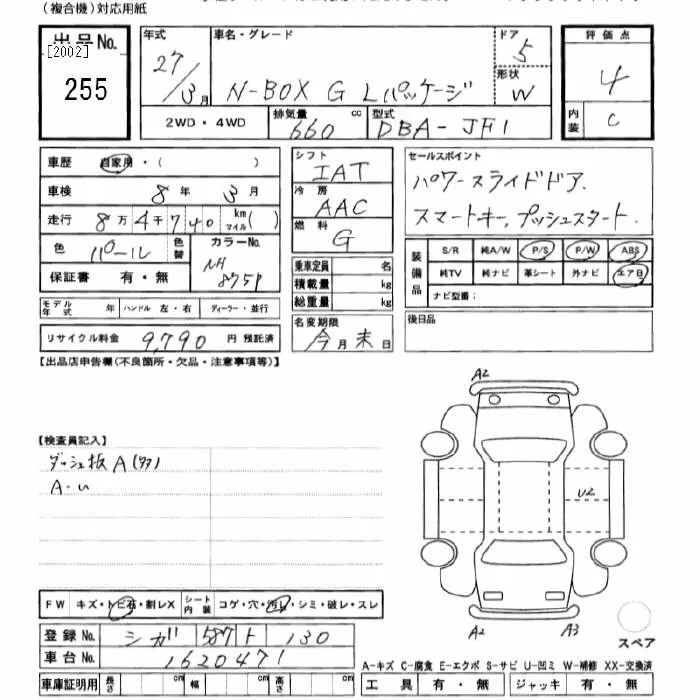 (複合機)対応用紙
出品No.
[2002]
255
年式 27/3月
車名・グレード N-BOX G Lパッケージ
ドア 5
形状 W
評価点 4
内装 C
2WD・4WD
排気量 660 cc
型式 DBA-JF1
車歴 自家用・( )
車検 8年 3月
走行 8万4千740 km マイル( )
色 パール 色替
カラーNo. NH 875P
保証書 有・無
モデル年式 年 ハンドル 左・右 ディーラー・並行
リサイクル料金 9,790 円 預託済
シフト IAT
冷房 AAC
燃料 G
乗車定員 名
積載量 kg
総重量 kg
名変期限 今月末日
セールスポイント
パワースライドドア.
スマートキー, プッシュスタート.
装備品 S/R 純A/W P/S P/W ABS
純TV 純ナビ 革シート 外ナビ エアB
ナビ型番:
後日品
【出品店申告欄(不良箇所・欠品・注意事項等)】
【検査員記入】
ダッシュ板 A(タタ)
A-U
A2
U2
A2
A3
スペア
FW キズ・トビ石・割レX シート内装 コゲ・穴・汚レ・シミ・破レ・スレ
登録No. シガ 587 ト 130
車台No. 1620471
車庫証明用 長さ cm 幅 cm 高さ cm
A-キズ C-腐食 E-エクボ S-サビ U-凹ミ W-補修 XX-交換済
工具 有・無 ジャッキ 有・無